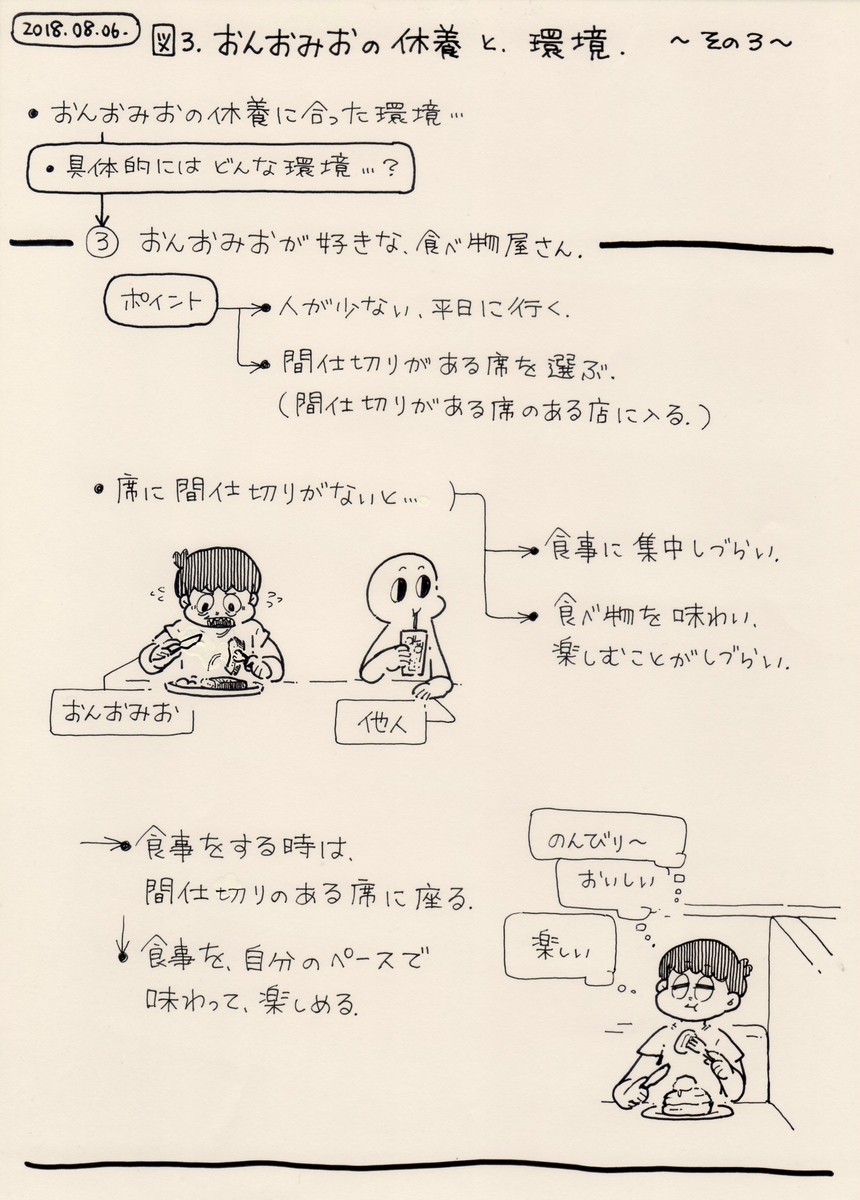 2018.08.06.
図3. おんおみおの休養と、環境. ～その3～
• おんおみおの休養に合った環境…
• 具体的にはどんな環境…?
③ おんおみおが好きな、食べ物屋さん.
ポイント
• 人が少ない、平日に行く.
• 間仕切りがある席を選ぶ.
(間仕切りがある席のある店に入る.)
• 席に間仕切りがないと…
• 食事に集中しづらい.
• 食べ物を味わい、
楽しむことがしづらい.
おんおみお
他人
• 食事をする時は、
間仕切りのある席に座る.
• 食事を、自分のペースで
味わって、楽しめる.
のんびり～
おいしい
楽しい